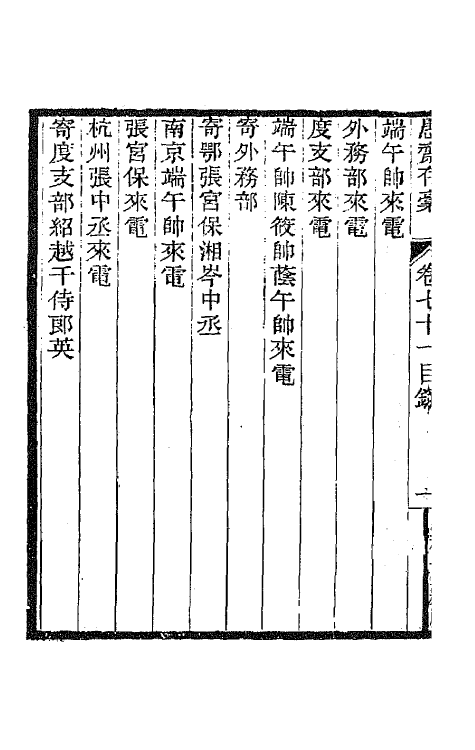 愚齋存稾　卷七十一目錄　一
端午帥來電
外務部來電
度支部來電
端午帥陳筱帥蔭午帥來電
寄外務部
寄鄂張宮保湘岑中丞
南京端午帥來電
張宮保來電
杭州張中丞來電
寄度支部紹越千侍郎英